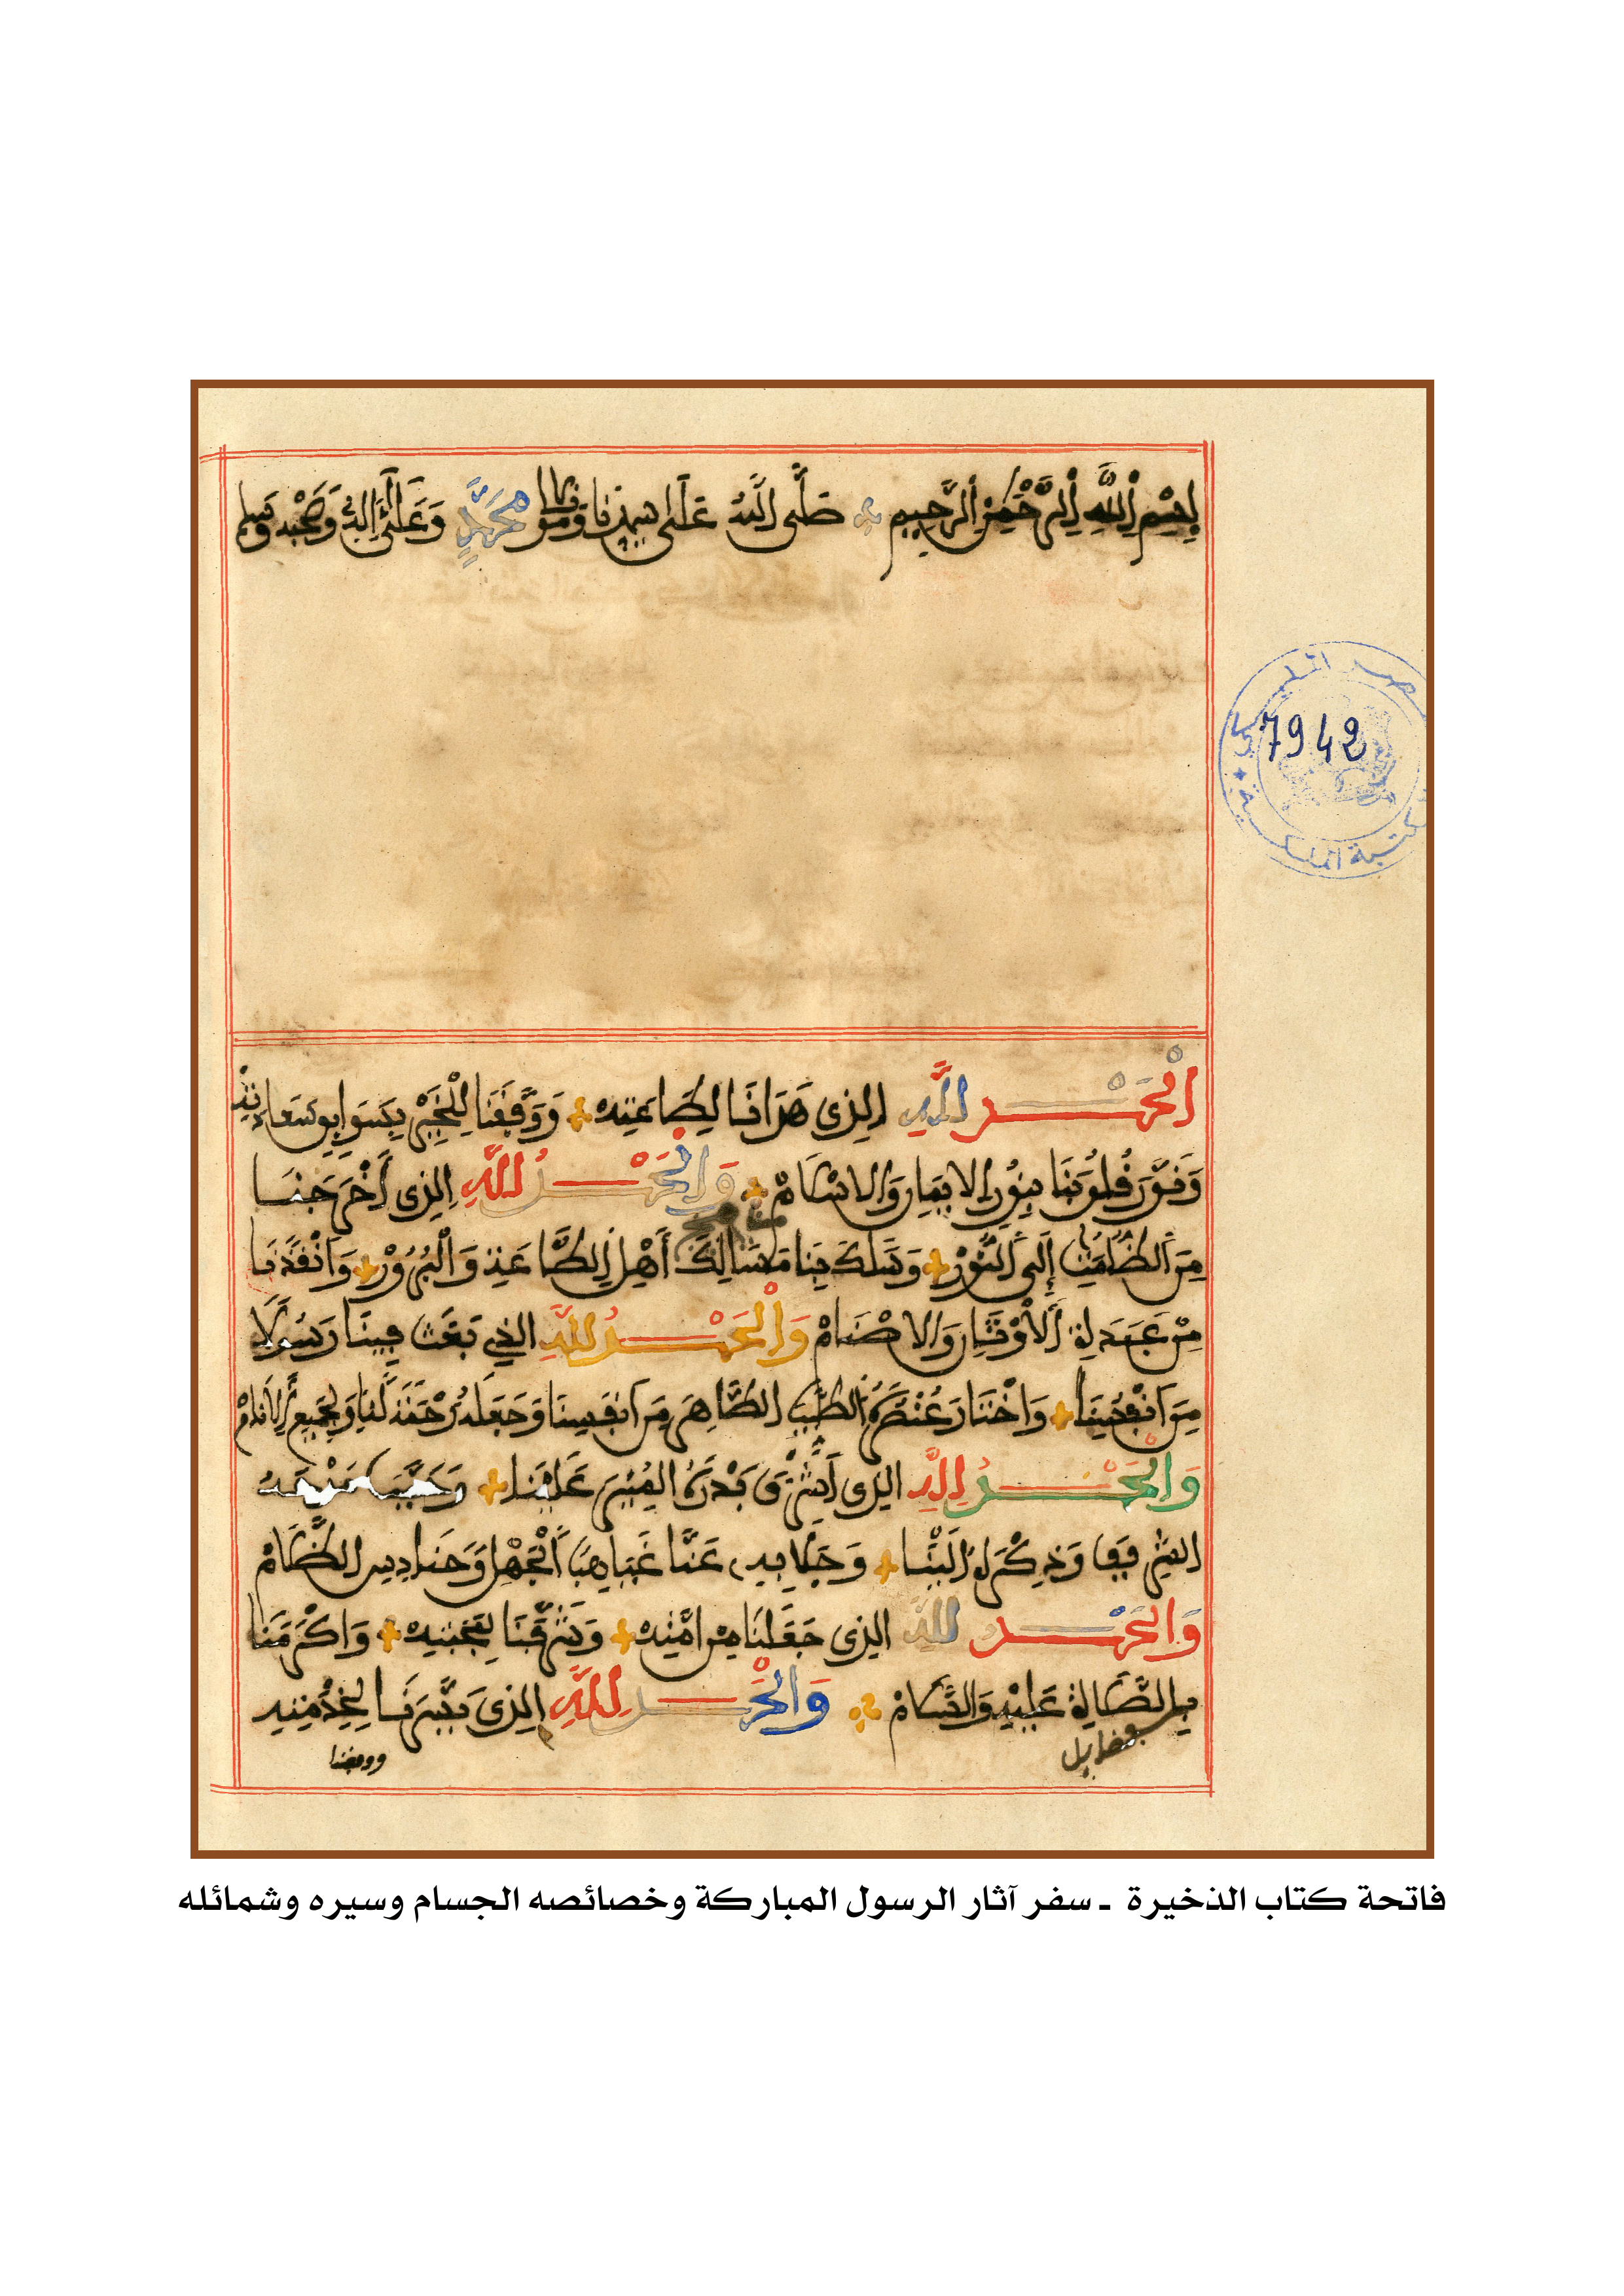 بِسْمِ اِللَّهِ اِلرَّحْمَٰنِ اِلرَّحِيمِ صَلَّى اللَّهُ عَلَى سيدنا ومولانا مُحَمَّدٍ وَعَلَى ءَالِهِ وَصَحْبِهِ وَسلم
7942
اَلْحَمْدُ لِلهِ اِلذِى هَدَانَا لِطَاعَتِهِ وَوَفَّقَنَا لِلْخَيْرِ
وَنَوَّرَ قُلُوبَنَا بِنُورِ الايمَانِ وَالاسْلَامْ وَالْحَمْدُ لِلَّهِ اِلذِى أَخْرَجَنَا
مِنَ الظُّلُمَٰتِ إِلَى النُّورْ وَسَلَكَ بِنَا مَسَالِكَ أَهْلِ الطَّاعَةِ وَالْبُرُورْ وَأَنْقَذَنَا
مِنْ عِبَادَةِ الَاوْثَانِ وَالاصْنَامْ وَالْحَمْدُ لِلَّهِ الذِي بَعَثَ فِينَا رَسُولًا
مِنَ اَنْفُسِنَا وَاخْتَارَ عُنْصُرَهُ الطَّيِّبَ الطَّاهِرَ مِنَ انفَسِنَا وَجَعَلَهُ رَحْمَةً لَنَا وَلِجَمِيعِ الَانَامْ
وَالْحَمْدُ لِلَّهِ الذِى أَشْرَقَ بَدْرَهُ المُنِيرَ عَلَيْنَا وَحَبَّبَ
وَذِكْرَهُ إِلَيْنَا وَجَلَا بِهِ عَنَّا غَيَاهِبَ الْجَهْلِ وَحَنَادِيسَ الظَّلَامْ
وَالْحَمْدُ لِلَّهِ الذِى جَعَلَنَا مِنْ امَّتِهِ وَشَرَّفَنَا بِمَحَبَّتِهِ وَاكْرَمَنَا
بِالصَّلَاةِ عَلَيْهِ وَالسَّلَامْ وَالْحَمْدُ لِلَّهِ اِلذِى يَسَّرَنَا لِخِدْمَتِهِ
ووفقنا
فاتحة كتاب الذخيرة ـ سفر آثار الرسول المباركة وخصائصه الجسام وسيره وشمائله